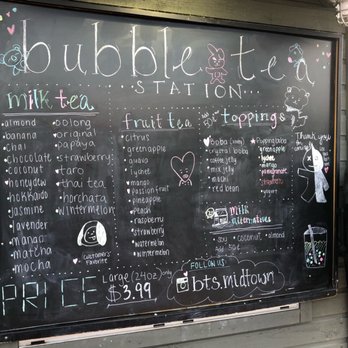 bubble tea
STATION
milk tea
almond
banana
chai
chocolate
coconut
honeydew
hokkaido
jasmine
lavender
mango
matcha
mocha
oolong
original
papaya
strawberry
taro
thai tea
horchata
wintermelon
customer's
favorite
fruit tea
citrus
green apple
guava
lychee
mango
passionfruit
pineapple
peach
raspberry
strawberry
watermelon
wintermelon
toppings
boba
crystal boba
coffee jelly
mix jelly
red bean
Popping boba
green apple
lychee
mango
pomegranate
strawberry
yogurt
milk
alternatives
soy
coconut
almond
Thank you
PRICE
Large (24oz) only
$3.99
FOLLOW US
bts.midtown